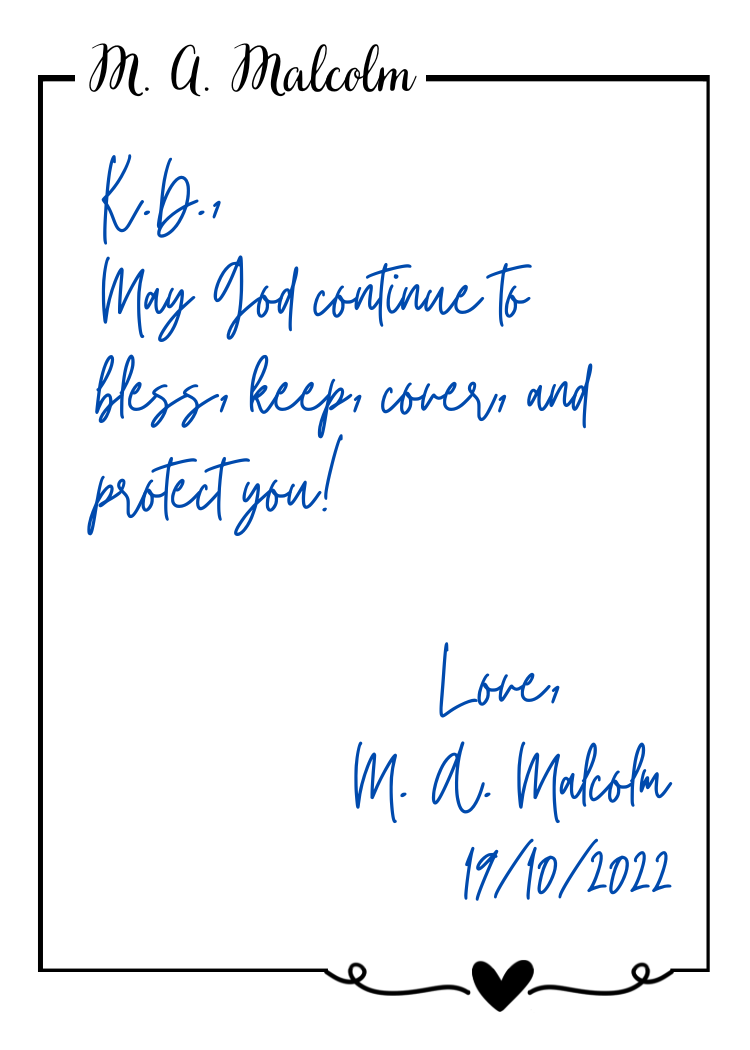 M. A. Malcolm
K.D.,
May God continue to
bless, keep, cover, and
protect you!
Love,
M. A. Malcolm
19/10/2022